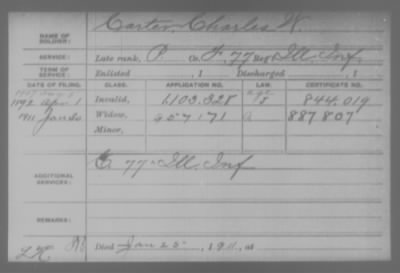 NAME OF SOLDIER: Carter, Charles W.
SERVICE: Late rank, P Co. F, 77 Reg Ill. Inf
TERM OF SERVICE: Enlisted , 1 Discharged , 1
DATE OF FILING. CLASS. APPLICATION NO. LAW. CERTIFICATE NO.
1892 Apr 1 Invalid, 1103.328 844.019
1911 Jan 30 Widow, 957.171 a 887807
Minor,
ADDITIONAL SERVICES: C. 77 Ill. Inf
REMARKS:
Died Jan 25, 1911, at